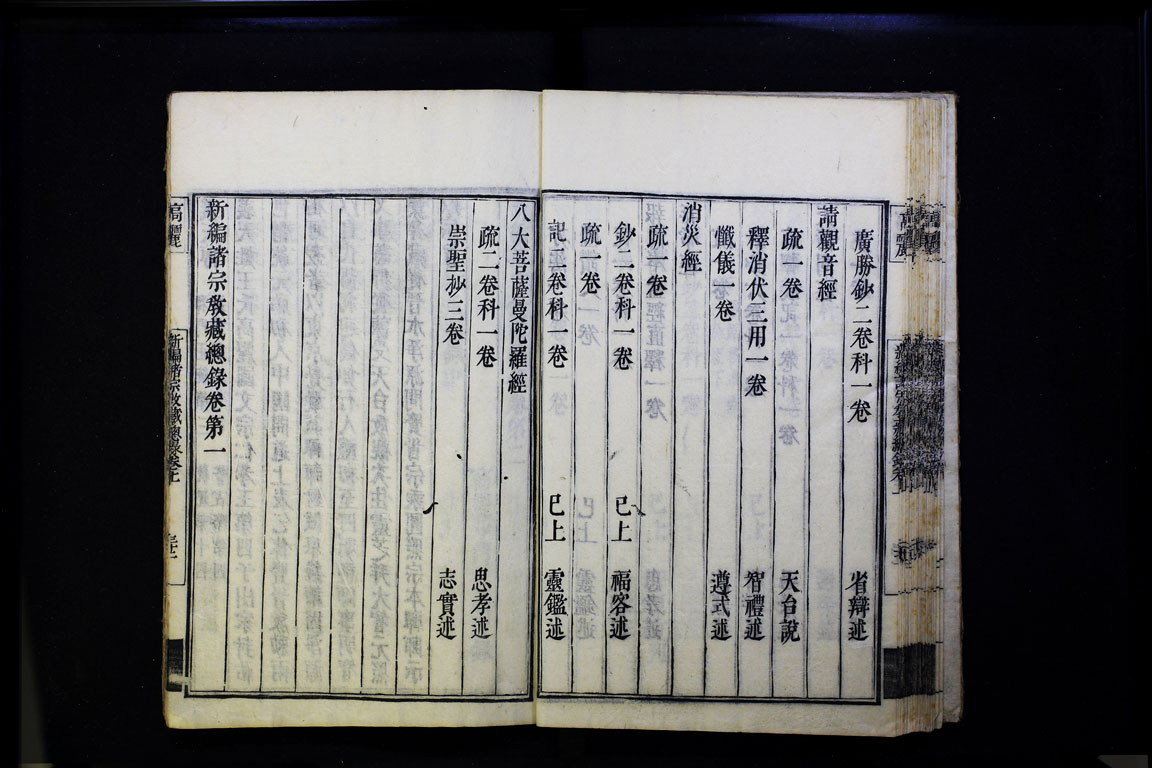 廣勝鈔二卷科一卷 省辯述
請觀音經
疏一卷 天台說
釋消伏三用一卷 智禮述
懺儀一卷 遵式述
消災經
疏一卷
鈔二卷科一卷 已上 福客述
疏一卷
記二卷科一卷 已上 靈鑑述
八大菩薩曼陀羅經
疏二卷科一卷 思孝述
崇聖抄三卷 志實述
新編諸宗教藏總錄卷第一
高麗
新編諸宗教藏總錄卷上